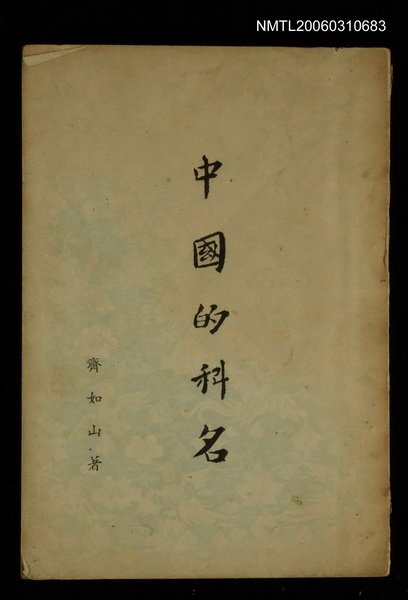 NMTL20060310683
中國的科名
齊如山著